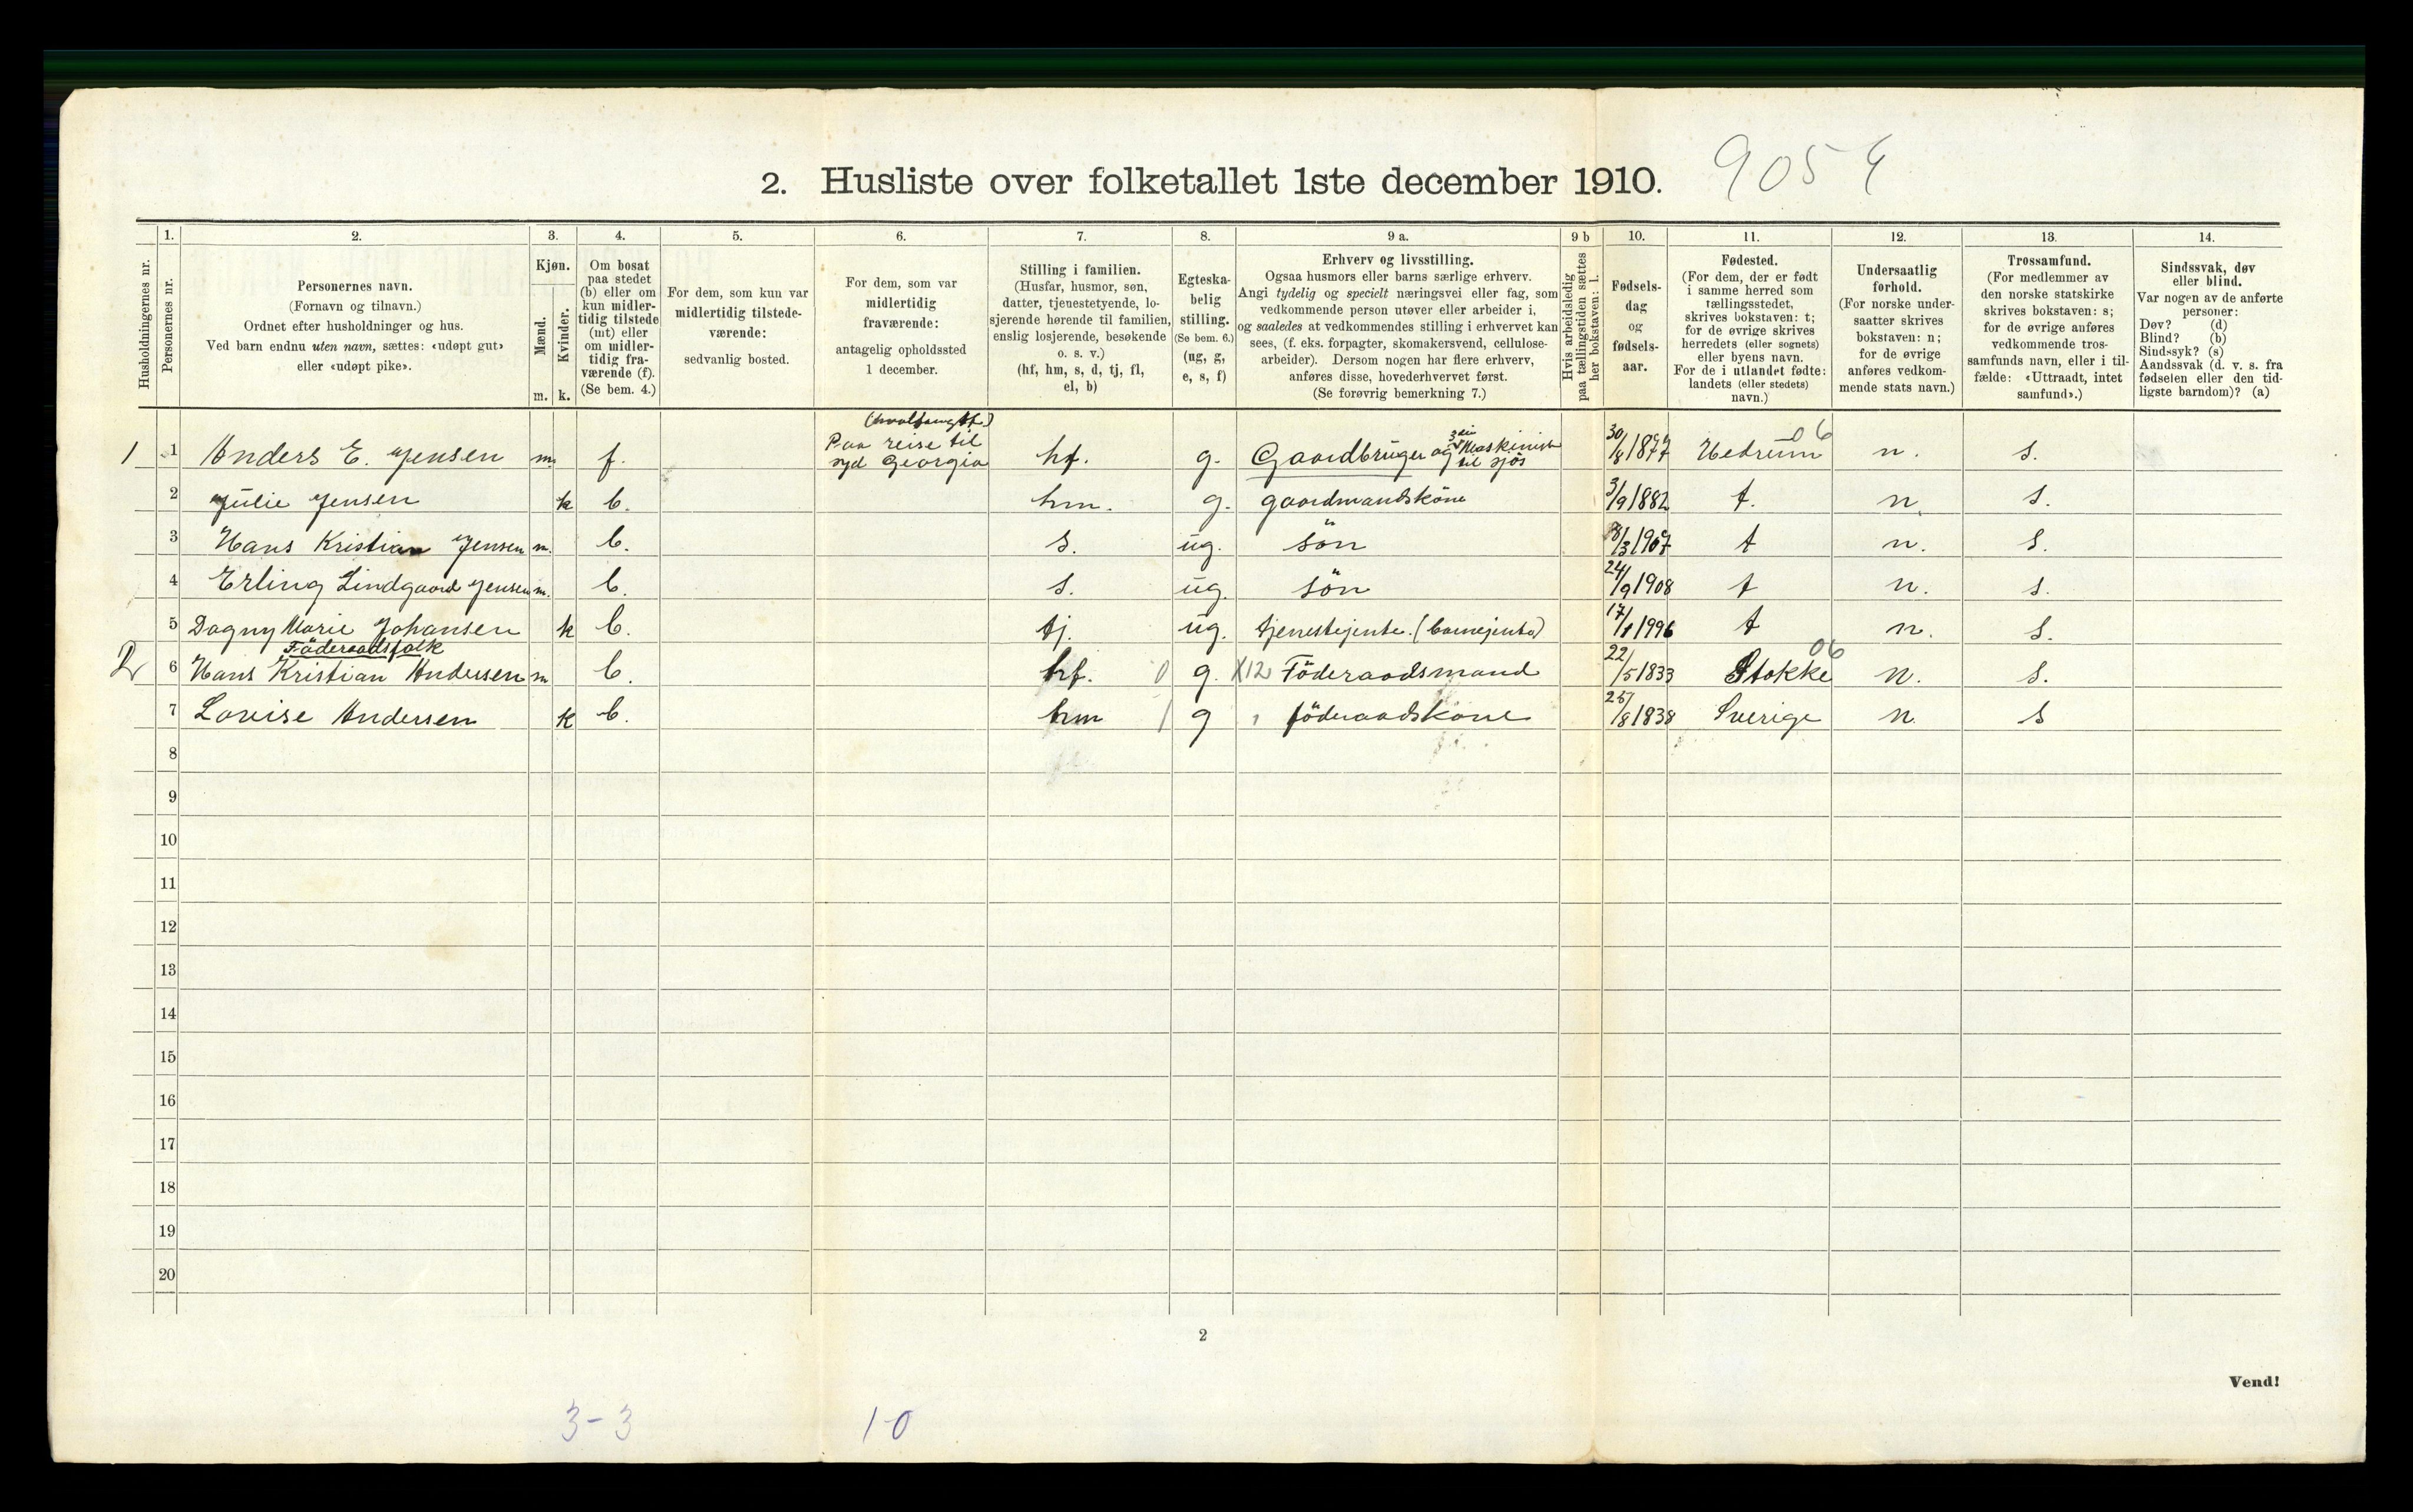 2. Husliste over folketallet 1ste december 1910. 9054
1. 2. 3. 4. 5. 6. 7. 8. 9 a. 9 b 10. 11. 12. 13. 14.
Husholdningernes nr.
Personernes nr.
Personernes navn.
(Fornavn og tilnavn.)
Ordnet efter husholdninger og hus.
Ved barn endnu uten navn, sættes: «udøpt gut»
eller «udøpt pike».
Kjøn.
Mænd.
Kvinder.
m. k.
Om bosat
paa stedet
(b) eller om
kun midler-
tidig tilstede
(mt) eller
om midler-
tidig fra-
værende (f).
(Se bem. 4.)
For dem, som kun var
midlertidig tilstede-
værende:
sedvanlig bosted.
For dem, som var
midlertidig
fraværende:
antagelig opholdssted
1 december.
Stilling i familien.
(Husfar, husmor, søn,
datter, tjenestetyende, lo-
sjerende hørende til familien,
enslig losjerende, besøkende
o. s. v.)
(hf, hm, s, d, tj, fl,
el, b)
Egteska-
belig
stilling.
(Se bem. 6.)
(ug, g,
e, s, f)
Erhverv og livsstilling.
Ogsaa husmors eller barns særlige erhverv.
Angi tydelig og specielt næringsvei eller fag, som
vedkommende person utøver eller arbeider i,
og saaledes at vedkommendes stilling i erhvervet kan
sees, (f. eks. forpagter, skomakersvend, cellulose-
arbeider). Dersom nogen har flere erhverv,
anføres disse, hovederhvervet først.
(Se forøvrig bemerkning 7.)
Hvis arbeidsledig
paa tællingstiden sættes
her bokstaven: l.
Fødsels-
dag
og
fødsels-
aar.
Fødested.
(For dem, der er født
i samme herred som
tællingsstedet,
skrives bokstaven: t;
for de øvrige skrives
herredets (eller sognets)
eller byens navn.
For de i utlandet fødte:
landets (eller stedets)
navn.)
Undersaatlig
forhold.
(For norske under-
saatter skrives
bokstaven: n;
for de øvrige
anføres vedkom-
mende stats navn.)
Trossamfund.
(For medlemmer av
den norske statskirke
skrives bokstaven: s;
for de øvrige anføres
vedkommende tros-
samfunds navn, eller i til-
fælde: «Uttraadt, intet
samfund».)
Sindssvak, døv
eller blind.
Var nogen av de anførte
personer:
Døv? (d)
Blind? (b)
Sindssyk? (s)
Aandssvak (d. v. s. fra
fødselen eller den tid-
ligste barndom)? (a)
(hvalfangst)
1 1 Anders E. Jensen m. f. Paa reise til syd Georgia hf. g. Gaardbruger og Maskinist til sjös 30/8 1877 Hedrum 06 n. s.
2 Julie Jensen k b. hm. g. gaardmandskone 3/9 1882 t. n. s.
3 Hans Kristian Jensen m. b. s. ug. sön /3 1907 t n. s.
4 Erling Lindgaard Jensen m. b. s. ug. sön 24/9 1908 t n. s.
5 Dagny Marie Johansen k b. tj. ug. tjenestejente. (barnejente) 17/1 1996 t n. s.
Föderaadsfolk
2 6 Hans Kristian Andersen m b. hf. 0 g. X12 Föderaadsmand 22/5 1833 Stokke 06 n. s.
7 Lovise Andersen k b. hm 1 g föderaadskone 25/8 1838 Sverige n. s
8
9
10
11
12
13
14
15
16
17
18
19
20
2
Vend!
3-3 1-0